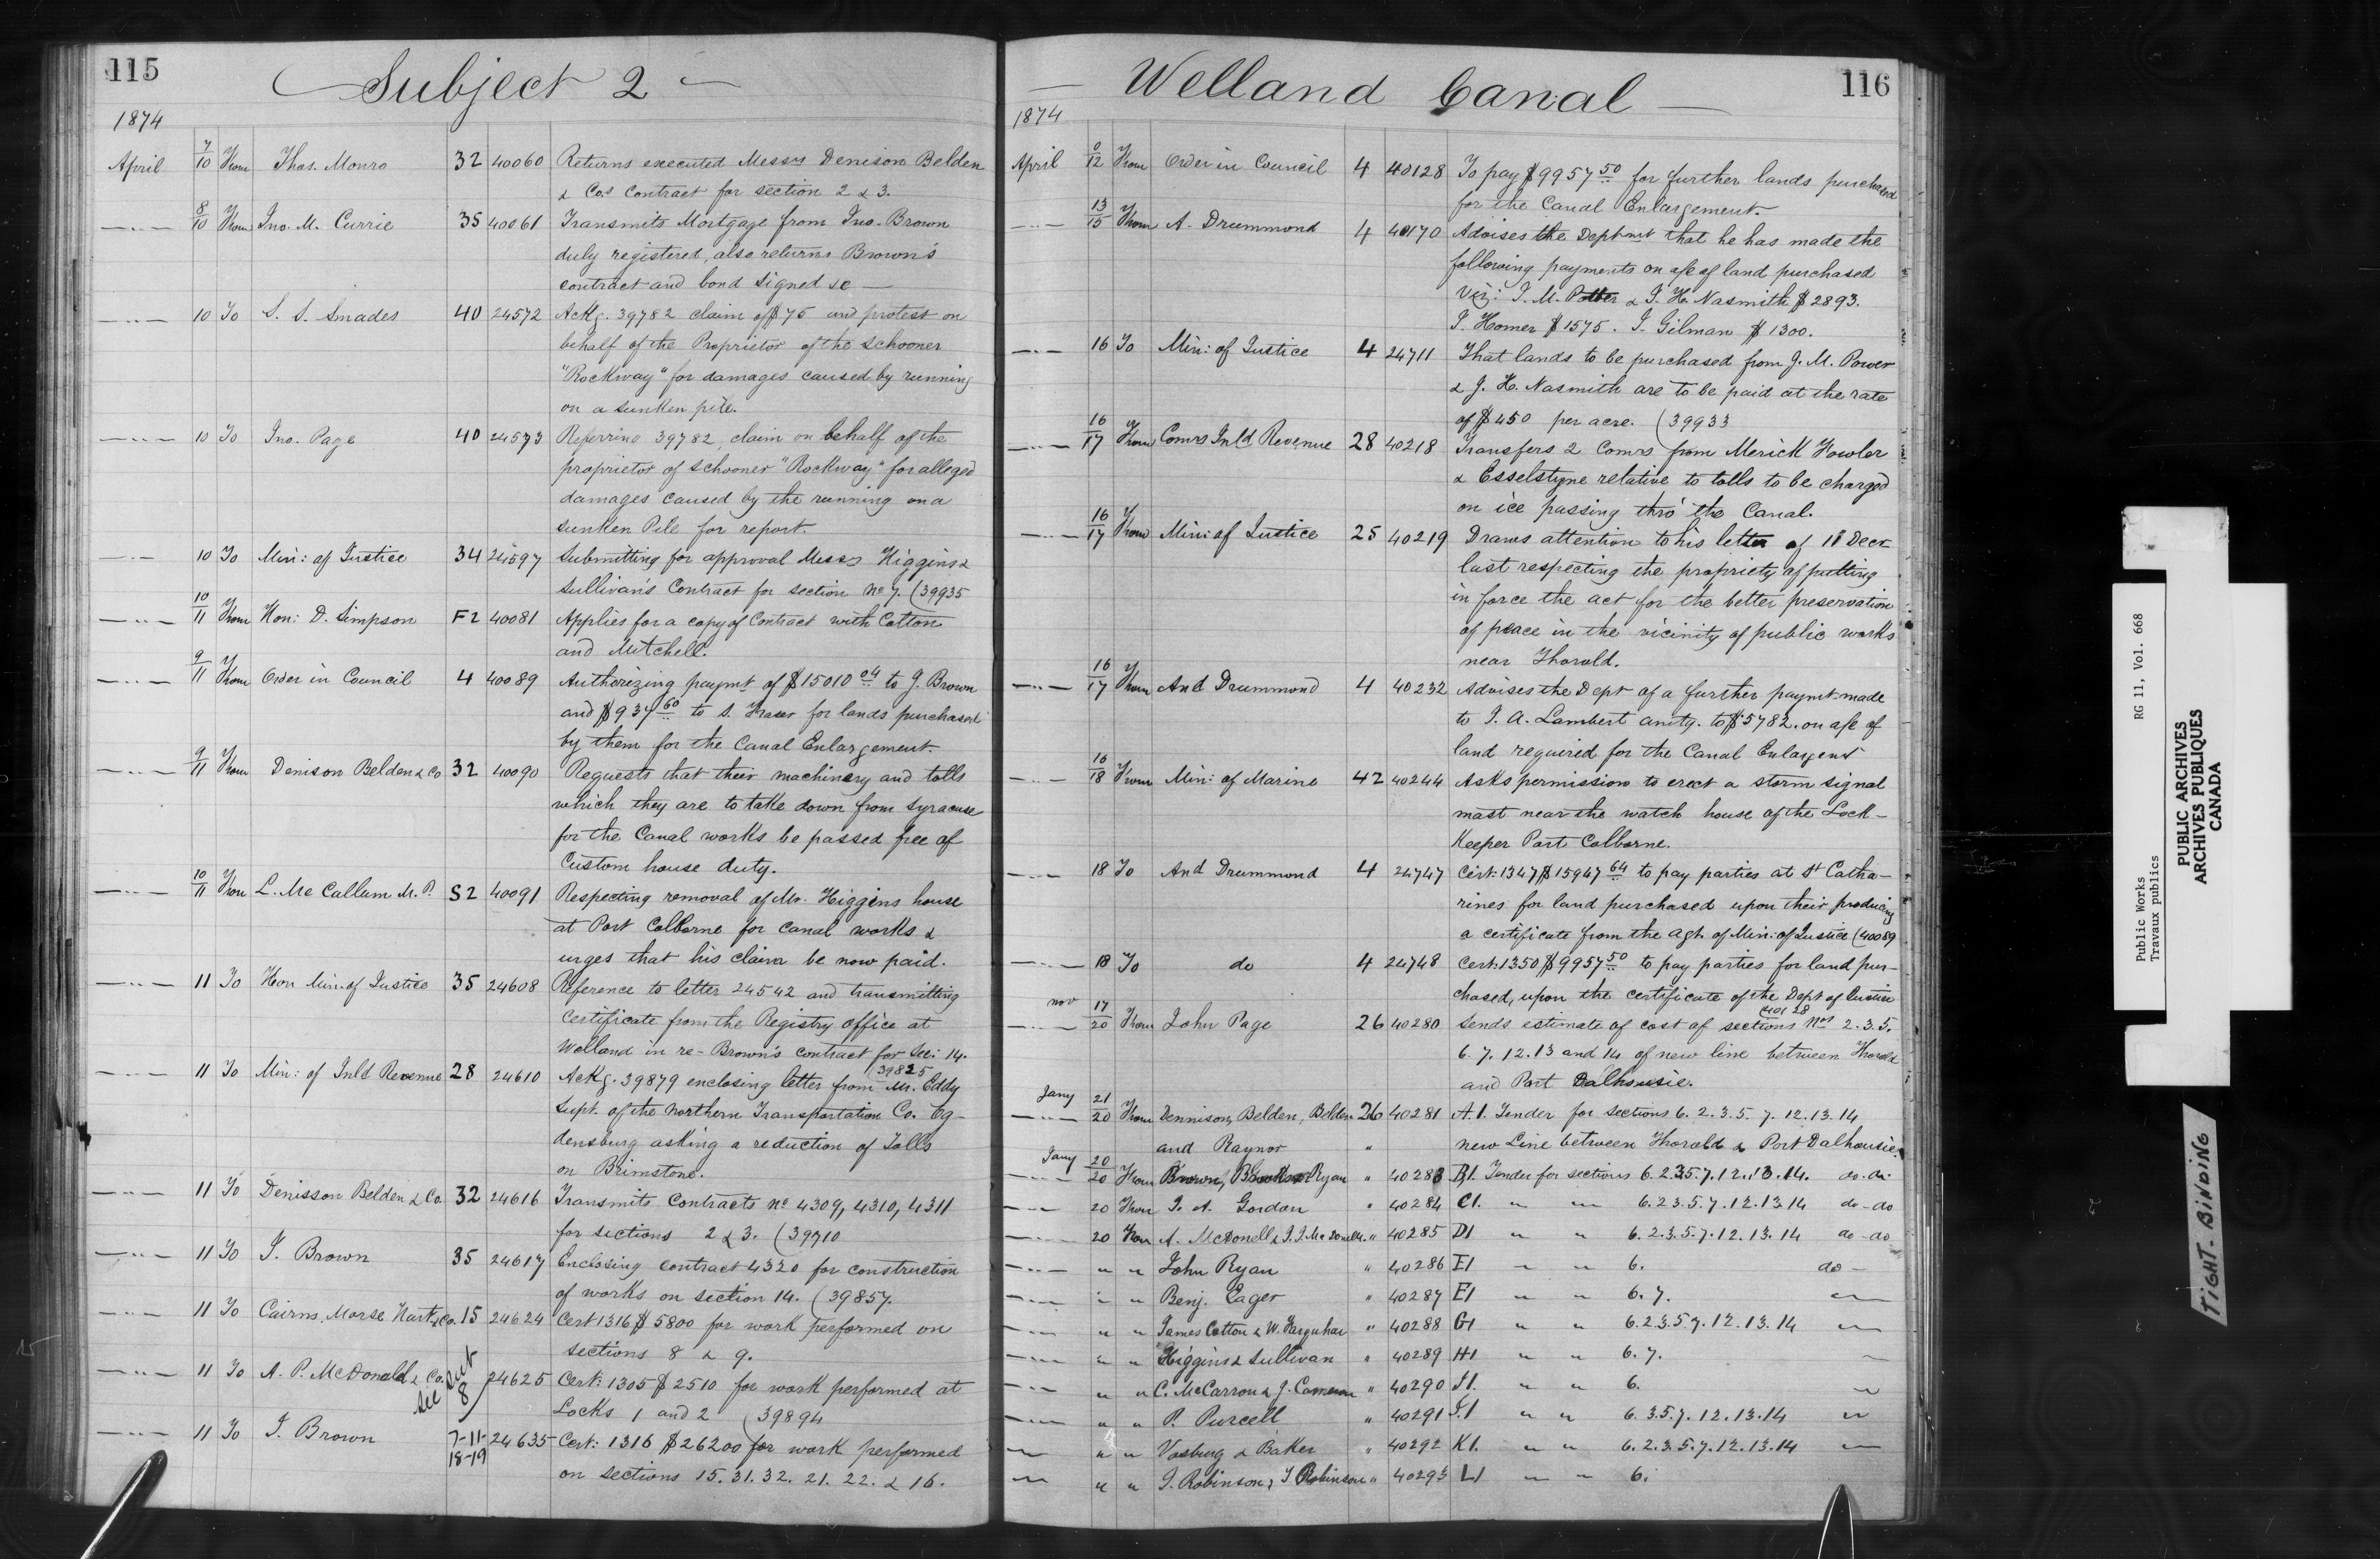 115
Subject 2
1874
April 7/10 From Thos. Monro 32 40060 Returns executed Messrs Denison Belden
& Cos contract for section 2 & 3.
8/10 From Jno. M. Currie 35 40061 Transmits Mortgage from Jno. Brown
duly registered, also returns Brown's
contract and bond signed &c
10 To S. S. Smades 40 24572 Ackg. 39782 claim of $75 and protest on
behalf of the Proprietor of the schooner
"Rockway" for damages caused by running
on a sunken pile.
10 To Jno. Page 40 24573 Referring 39782, claim on behalf of the
proprietor of schooner "Rockway" for alleged
damages caused by the running on a
sunken Pile for report.
10 To Min: of Justice 34 24597 Submitting for approval Messrs Higgins &
Sullivan's Contract for section No 7. (39935
10/11 From Hon: D. Simpson F2 40081 Applies for a copy of Contract with Cotton
and Mitchell.
9/11 From Order in Council 4 40089 Authorizing paymt of $15010 04 to J. Brown
and $934 60 to S. Fraser for lands purchased
by them for the Canal Enlargement.
9/11 From Denison Belden & Co 32 40090 Requests that their machinery and tolls
which they are to take down from Syracuse
for the Canal works be passed free of
Custom house duty.
10/11 From L. McCallum M.P. S2 40091 Respecting removal of Mr. Higgins house
at Port Colborne for Canal works &
urges that his claim be now paid.
11 To Hon Min: of Justice 35 24608 Reference to letter 24542 and transmitting
Certificate from the Registry office at
Welland in re-Brown's contract for Sec: 14.
11 To Min: of Inld Revenue 28 24610 Ackg. 39879 enclosing letter 39825 from Mr. Eddy
Supt. of the Northern Transportation Co. Og-
densburg asking a reduction of Tolls
on Brimstone.
11 To Denisson Belden & Co. 32 24616 Transmits Contracts No 4309, 4310, 4311
for sections 2 & 3. (39710
11 To J. Brown 35 24617 Enclosing contract 4320 for construction
of works on section 14. (39857.
11 To Cairns, Morse Hart & Co. 15 24624 Cert 1316 $5800 for work performed on
sections 8 & 9.
11 To A. P. McDonald & Co. 8 24625 Cert: 1305 $2510 for work performed at
Locks 1 and 2 (39894
11 To J. Brown 7-11- 24635 Cert: 1316 $26200 for work performed
18-19 on sections 15. 31. 32. 21. 22. & 16.
Welland Canal
116
1874
April 12 From Order in Council 4 40128 To pay $9957 50 for further lands purchased
for the Canal Enlargement.
13/15 From A. Drummond 4 40170 Advises the Deptmt that he has made the
following payments on a/c of land purchased
Viz: J. M. Potter & J. H. Nasmith $2893.
J. Homer $1575. J. Gilman $1300.
16 To Min: of Justice 4 24711 That lands to be purchased from J. M. Power
& J. H. Nasmith are to be paid at the rate
of $450 per acre. (39933
16/17 From Comrs Inld Revenue 28 40218 Transfers 2 Comrs from Merick Fowler
& Esselstyne relative to tolls to be charged
on ice passing thro' the Canal.
16/17 From Min: of Justice 25 40219 Draws attention to his letter of 11 Decr
last respecting the propriety of putting
in force the act for the better preservation
of peace in the vicinity of public works
near Thorold.
16/17 From And Drummond 4 40232 Advises the Dept of a further paymt made
to J. A. Lambert amtg. to $5782. on a/c of
land required for the Canal Enlargent
16/18 From Min: of Marine 42 40244 Asks permission to erect a storm signal
mast near the watch house of the Lock-
Keeper Port Colborne.
18 To And Drummond 4 24747 Cert: 1347 $15947 64 to pay parties at St Catha-
rines for land purchased upon their producing
a certificate from the agt. of Min: of Justice (40089
18 To do 4 24748 Cert: 1350 $9957 50 to pay parties for land pur-
chased, upon the certificate of the Dept of Justice
40128
nov 17/20 From John Page 26 40280 Sends estimate of cost of sections Nos 2. 3. 5.
6. 7. 12. 13 and 14 of new line between Thorold
and Port Dalhousie.
Jany 21/20 From Dennison, Belden, Belden 26 40281 A1. Tender for sections 6. 2. 3. 5 7. 12. 13. 14
and Raynor " new Line between Thorold & Port Dalhousie.
Jany 20/20 From Brown, Brooks & Ryan " 40283 B1. Tender for sections 6. 2.3.5. 7. 12. 13. 14. do. do
20 From J. A. Gordon " 40284 C1. " " 6. 2 3. 5. 7. 12. 13. 14 do - do
20 From A. McDonell & J. J. McDonell. " 40285 D1 " " 6. 2. 3. 5. 7. 12. 13. 14 do - do
" " John Ryan " 40286 E1 " " 6. do -
" " Benj. Eager " 40287 F1 " " 6. 7. "
" " James Cotton & W. Farquhar " 40288 G1 " " 6. 2. 3. 5 7. 12. 13. 14 "
" " Higgins & Sullivan " 40289 H1 " " 6. 7. "
" " C. McCarron & J. Cameron " 40290 I1. " " 6. "
" " P. Purcell " 40291 J.1 " " 6. 3. 5. 7. 12. 13. 14 "
" " Vosburg & Baker " 40292 K1. " " 6. 2. 3. 5. 7. 12. 13. 14 "
" " J. Robinson, & J Robinson " 40293 L1 " " 6.
Public Works RG 11, Vol. 668
Travaux publics
PUBLIC ARCHIVES
ARCHIVES PUBLIQUES
CANADA
TIGHT-BINDING